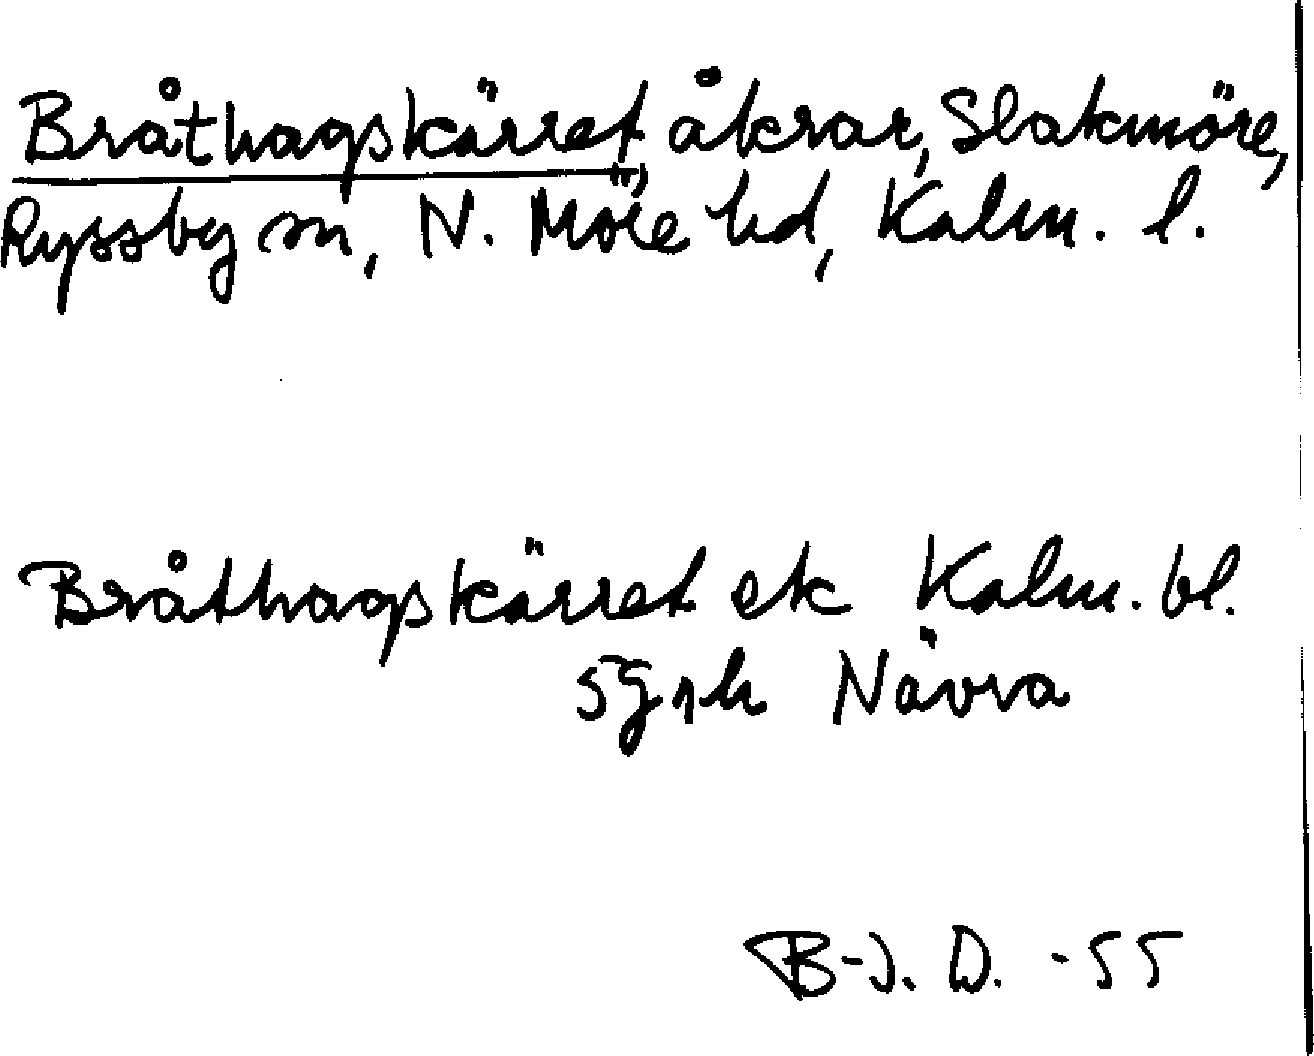 Bråthagskärret åkrar, Slakmöre,
Ryssby sn, N. Möre hd, Kalm. l.
Bråthagskärret ek Kalm. bl.
5g1h Nävra
B-J. D. -55